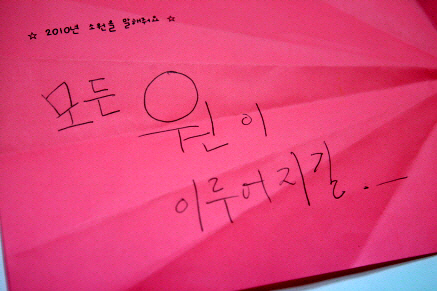 ☆ 2010년 소원을 말해줘쇼 ☆
모든 원이
이루어지길.—